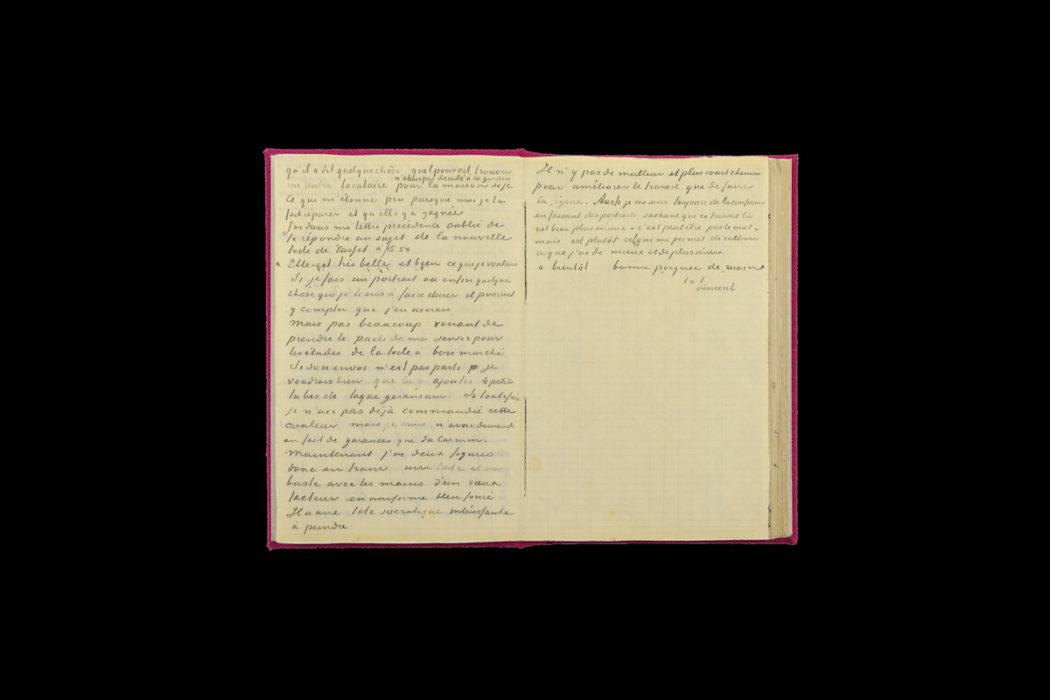 qu'il a dit quelque chôse quel pouvait trouver
n'était pas décidé à la garder
un autre locataire pour la maison si je
Ce qui m'étonne peu puisque moi je l'ai
fait réparer et qu'elle y a gagnée
J'ai dans ma lettre précédente oublié de
te répondre au sujet de la nouvelle
toile de Tasset à 5.50
Elle est très belle et bien ce que je voulais
si je fais un portrait ou enfin quelque
chose que je tienne à faire durer et pouvait
y compter que j'en userais
mais pas beaucoup venant de
prendre le parti de me servir pour
les études de la toile à bon marché
Si son envoi n'est pas parti je
voudrais bien que ajouter 4 petits
tubes de laque geranium Si toutefois
je n'ai pas déjà commandé cette
couleur mais je crois n'avoir demandé
en fait de garances que du Carmin.
Maintenant j'ai deux figures
donc en train une tête et un
buste avec les mains d'un vieux
facteur en uniforme bleu foncé
Il a une tête socratique intéressante
à peindre
Il n'y a pas de meilleur et plus court chemin
pour améliorer le travail que de faire
la figure. Aussi je me sens toujours de la confiance
en faisant des portraits sachant que ce travail là
est bien plus sérieux – c'est peut être pas le mot –
mais est plutôt ce qui me permet de cultiver
ce que j'ai de mieux et de plus sérieux
a bientôt bonne poignée de main
t. à t.
Vincent